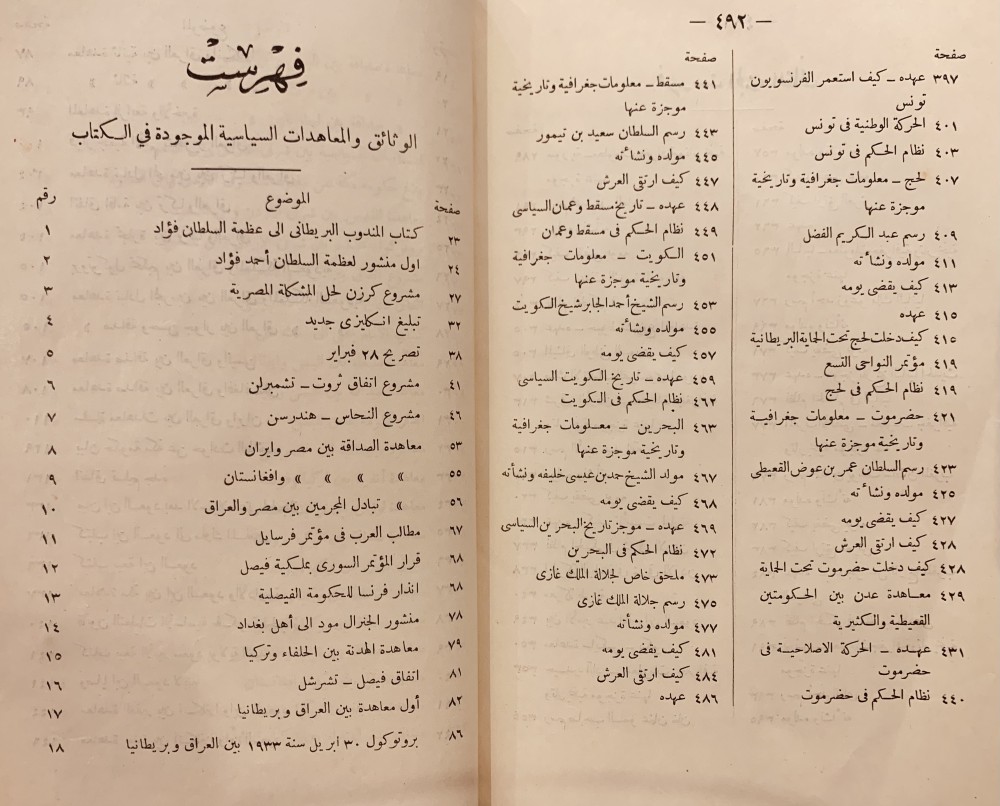 — ٤٩٢ —
صفحة
٣٩٧ عهده – كيف استعمر الفرنسويون
تونس
٤٠١ الحركة الوطنية فى تونس
٤٠٣ نظام الحكم فى تونس
٤٠٧ لحج – معلومات جغرافية وتاريخية
موجزة عنها
٤٠٩ رسم عبد الكريم الفضل
٤١١ مولده ونشأته
٤١٣ كيف يقضى يومه
٤١٥ عهده
٤١٥ كيف دخلت لحج تحت الحماية البريطانية
٤١٩ مؤتمر النواحى التسع
٤١٩ نظام الحكم فى لحج
٤٢١ حضرموت – معلومات جغرافيـة
وتاريخية موجزة عنها
٤٢٣ رسم السلطان عمر بن عوض القعيطى
٤٢٥ مولده ونشأته
٤٢٧ كيف يقضى يومه
٤٢٨ كيف ارتقى العرش
٤٢٨ كيف دخلت حضرموت تحت الحماية
٤٢٩ معـاهدة عدن بين الحكومتين
القعيطية والكثيرية
٤٣١ عهـده – الحركة الاصلاحيـة فى
حضرموت
٤٤٠ نظام الحكم فى حضرموت
صفحة
٤٤١ مسقط – معلومات جغرافية وتاريخية
موجزة عنها
٤٤٣ رسم السلطان سعيد بن تيمور
٤٤٥ مولده ونشأته
٤٤٧ كيف ارتقى العرش
٤٤٨ عهده – تاريخ مسقط وعمان السياسى
٤٤٩ نظام الحكم فى مسقط وعمان
٤٥١ الكويت – معلومات جغرافية
وتاريخية موجزة عنها
٤٥٣ رسم الشيخ أحمد الجابر شيخ الكويت
٤٥٥ مولده ونشأته
٤٥٧ كيف يقضى يومه
٤٥٩ عهده – تاريخ الكويت السياسى
٤٦٢ نظام الحكم فى الكويت
٤٦٣ البحرين – معـلومات جغرافية
وتاريخية موجزة عنها
٤٦٧ مولد الشيخ حمد بن عيسى خليفه ونشأته
٤٦٨ كيف يقضى يومه
٤٦٩ عهده – موجز تاريخ البحرين السياسى
٤٧٢ نظام الحكم فى البحرين
٤٧٣ ملحق خاص لجلالة الملك غازى
٤٧٥ رسم جلالة الملك غازى
٤٧٧ مولده ونشأته
٤٨١ كيف يقضى يومه
٤٨٤ كيف ارتقى العرش
٤٨٦ عهده
فهرست
الوثائق والمعاهدات السياسية الموجودة في الكتاب
صفحة الموضوع رقم
٢٣ كتاب المندوب البريطانى الى عظمة السلطان فؤاد ١
٢٤ اول منشور لعظمة السلطان أحمد فؤاد ٢
٢٧ مشروع كرزن لحل المشكلة المصرية ٣
٣٢ تبليغ انكليزى جديد ٤
٣٨ تصريح ٢٨ فبراير ٥
٤١ مشروع اتفاق ثروت – تشمبرلن ٦
٤٦ مشروع النحاس – هندرسن ٧
٥٣ معاهدة الصداقة بين مصر وايران ٨
٥٥ » » » » وافغانستان ٩
٥٦ » تبادل المجرمين بين مصر والعراق ١٠
٦٧ مطالب العرب فى مؤتمر فرسايل ١١
٦٨ قرار المؤتمر السورى بملكية فيصل ١٢
٦٨ انذار فرنسا للحكومة الفيصلية ١٣
٧٨ منشور الجنرال مود الى أهل بغداد ١٤
٧٩ معاهدة الهدنة بين الحلفاء وتركيا ١٥
٨١ اتفاق فيصل – تشرشل ١٦
٨٢ أول معاهدة بين العراق وبريطانيا ١٧
٨٦ بروتوكول ٣٠ ابريل سنة ١٩٣٣ بين العراق وبريطانيا ١٨